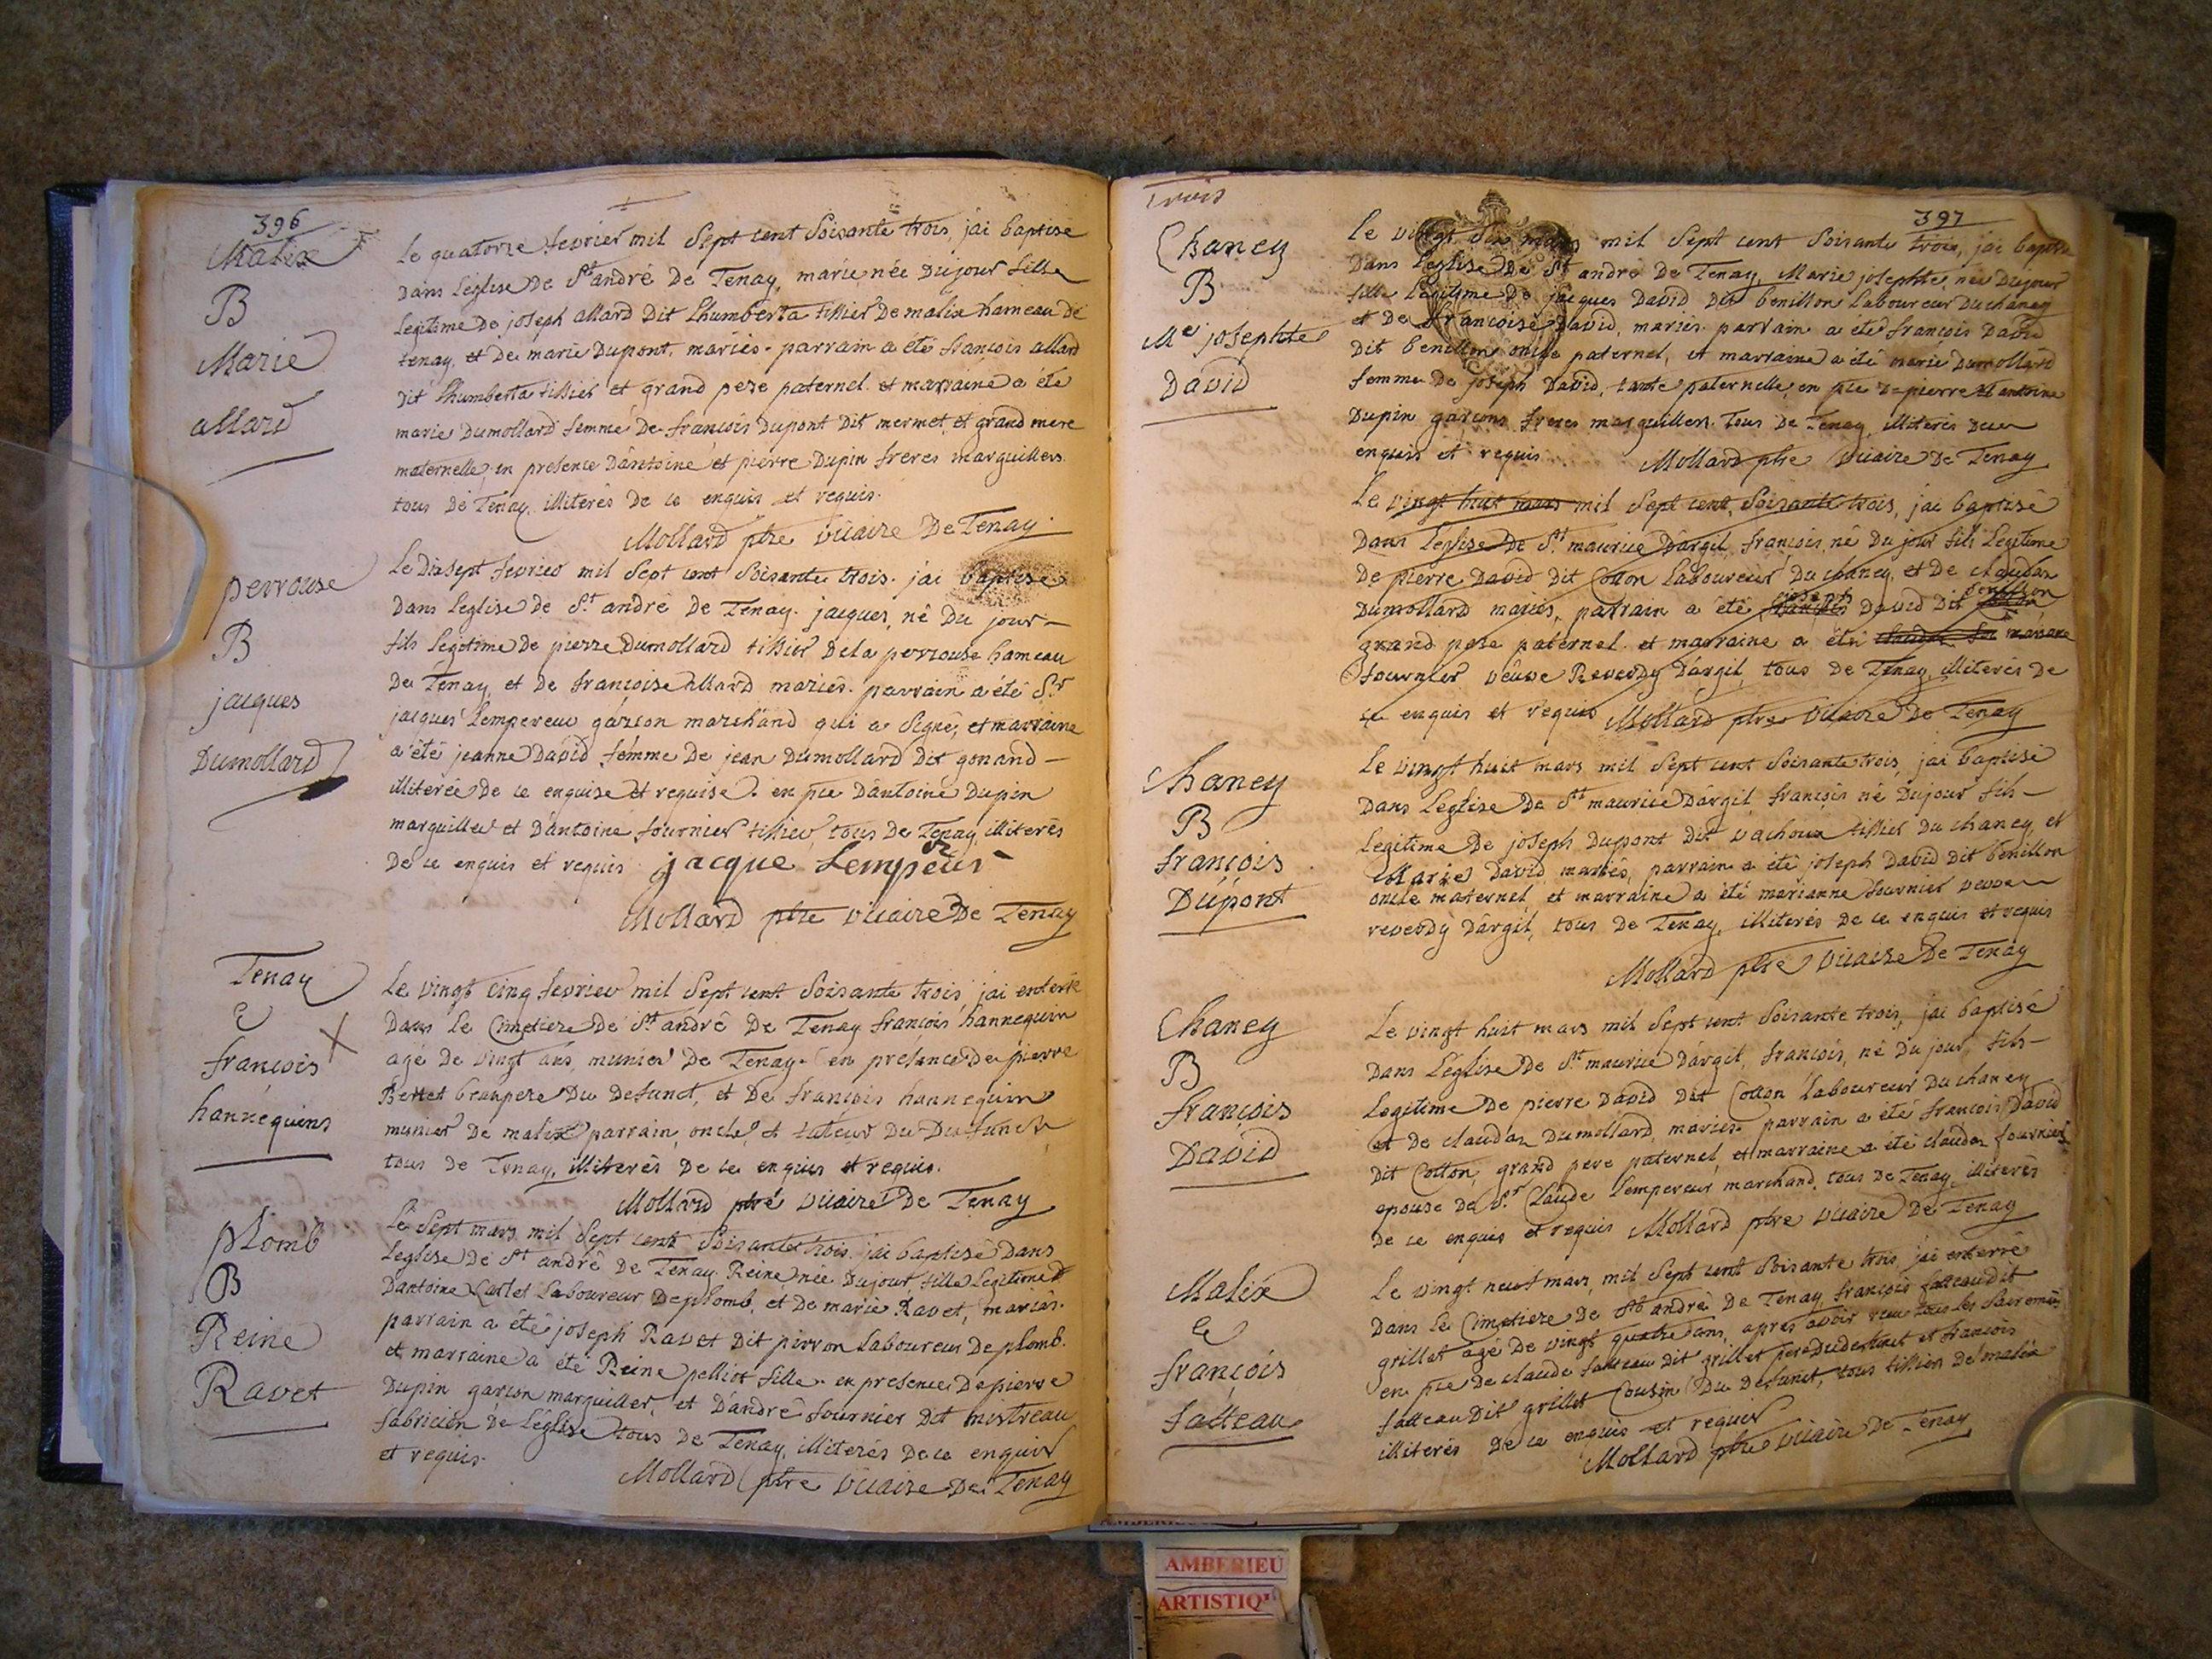 396
Malix
B
Marie
allard
Le quatorze fevrier mil Sept cent Soixante trois, j'ai baptisé
Dans L'église De St andré De Tenay, marie, née Dujour fille
Legitime De joseph allard Dit Lhumberta tissier De malix hameau de
tenay, et De marie Dupont, mariés. parrain a été françois allard
Dit Lhumberta tissier et grand pere paternel et marraine a été
marie Dumollard femme De françois Dupont Dit mermet, et grand mere
maternelle, en presence D'antoine et pierre Dupin freres marguillers.
tous de Tenay, illiterés de ce enquis et requis.
Mollard ptre vicaire De Tenay.
perrouse
B
jacques
Dumollard
Le Dixsept fevrier mil Sept cent Soixante trois. j'ai baptisé
Dans L'eglise de St andré De Tenay. jacques, né Du jour
fils Legitime de pierre Dumollard tissier De la perrouse hameau
de Tenay, et de françoise allard mariés. parrain a été Sr
jacques Lempereur garson marchand qui a Signé, et marraine
a été jeanne David femme De jean Dumollard Dit gonand
illiterée de ce enquise et requise. en pce D'antoine Dupin
marguiller et D'antoine fournier tissier, tous De Tenay, illiterés
De ce enquis et requis jacque Lempeur
Mollard ptre vicaire De Tenay
Tenay
E
françois
hannequins
Le vingt cinq fevrier mil Sept cent Soixante trois j'ai enterré
Dans Le Cimetiere De St andré De Tenay françois hannequin
agé De vingt ans, munier De Tenay. en présence de pierre
Bertet beaupere Du Defunct, et De françois hannequin
munier De malix parrain, oncle, et tuteur Du Defunct
tous de Tenay, illiterés De ce enquis et requis.
Mollard ptre vicaire De Tenay
plomb
B
Reine
Ravet
Le Sept mars mil Sept cent Soixante trois. j'ai baptisé Dans
L'eglise De St andré De Tenay. Reine née Dujour, fille Legitime
D'antoine Laboureur De plomb, et De marie Ravet, mariés.
parrain a été joseph Ravet Dit pirron Laboureur De plomb.
et marraine a été Reine pelliot fille. en presence De pierre
Dupin garson marguiller, et D'andré fournier Dit mistreau
fabricien De L'église tous De Tenay, illiterés De ce enquis
et requis.
Mollard ptre vicaire De Tenay
trois
397
Chaney
B
Me josephte
David
Le vingt Six mars mil Sept cent Soixante trois, j'ai baptisé
Dans L'eglise De St andré De Tenay, Marie josephte, née Dujour
fille Legitime De jacques David Dit benillon Laboureur Du chaney
et De françoise David, mariés. parrain a été françois David
Dit benillon oncle paternel, et marraine a été marie Dumollard
femme De joseph David, tante paternelle, en pce De pierre et antoine
Dupin garsons freres marguillers. tous De Tenay, illiterés De ce
enquis et requis. Mollard ptre vicaire De Tenay
Le vingt huit mars mil Sept cent, Soixante trois, j'ai baptisé
Dans L'église De St maurice D'argil, françois, né Du jour fils Legitime
De pierre David Dit Cotton Laboureur Du chaney, et De claudaz
Dumollard mariés, parrain a été joseph David Dit benillon
grand pere paternel et marraine a été marianne
fournier veuve Reverdy D'argil, tous De Tenay, illiterés De
ce enquis et requis Mollard ptre vicaire De Tenay
Chaney
B
françois
Dupont
Le vingt huit mars mil Sept cent Soixante trois, j'ai baptisé
Dans L'eglise De St maurice D'argil, françois né Dujour fils
Legitime De joseph Dupont Dit vachoux tissier Du chaney, et
Marie David mariés, parrain a été joseph David Dit benillon
oncle maternel et marraine a été marianne fournier veuve
reverdy D'argil, tous De Tenay, illiterés De ce enquis et requis
Mollard ptre vicaire De Tenay
Chaney
B
françois
David
Le vingt huit mars mil Sept cent Soixante trois, j'ai baptisé
Dans L'église De St maurice D'argil, françois, né Du jour, fils
Legitime De pierre David Dit Cotton Laboureur Du chaney
et De claudaz Dumollard, mariés. parrain a été françois David
Dit Cotton, grand pere paternel, et marraine a été claudaz fournier
epouse De Sr Claude Lempereur marchand, tous De Tenay, illiterés
De ce enquis et requis Mollard ptre vicaire De Tenay
Malix
E
françois
fatteau
Le vingt neuf mars, mil Sept cent Soixante trois j'ai enterré
Dans Le Cimetiere De St andré De Tenay françois fatteau dit
grillet agé De vingt quatre ans, apres avoir reçu tous les Sacremens
en pce De claude fatteau Dit grillet pere Du defunct et francois
fatteau Dit grillet Cousin Du Defunct, tous tissiers De malix
illiterés De ce enquis et requis
Mollard ptre vicaire De Tenay
AMBERIEU
ARTISTIQ